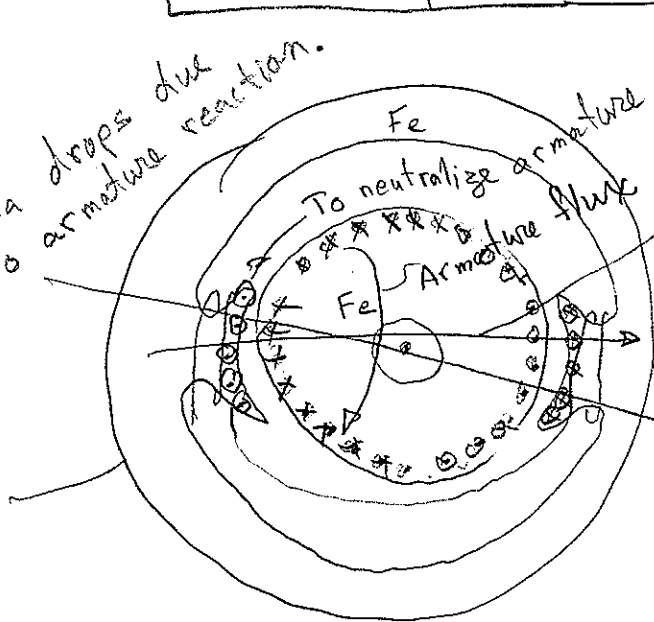 a drops due
o armature reaction.
Fe
To neutralize armature
flux
Armature
Fe